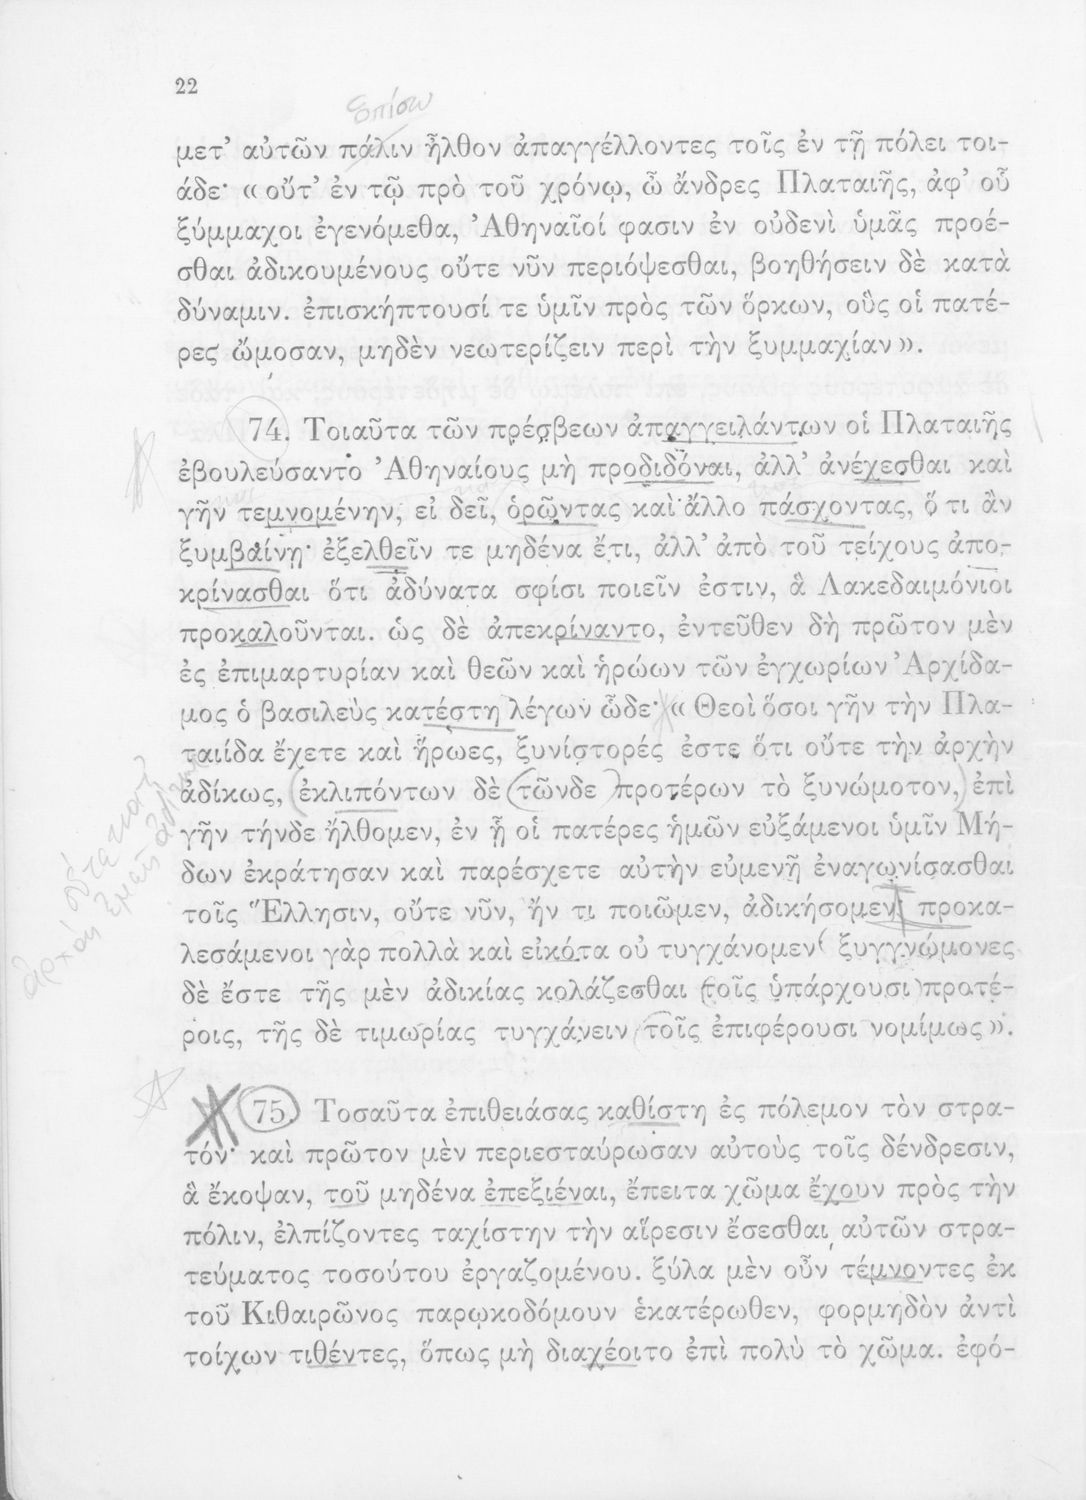 22
ὀπίσω
μετ’ αὐτῶν πάλιν ἦλθον ἀπαγγέλλοντες τοῖς ἐν τῇ πόλει τοι-
άδε· « οὔτ’ ἐν τῷ πρὸ τοῦ χρόνῳ, ὦ ἄνδρες Πλαταιῆς, ἀφ’ οὗ
ξύμμαχοι ἐγενόμεθα, Ἀθηναῖοί φασιν ἐν οὐδενὶ ὑμᾶς προέ-
σθαι ἀδικουμένους οὔτε νῦν περιόψεσθαι, βοηθήσειν δὲ κατὰ
δύναμιν. ἐπισκήπτουσί τε ὑμῖν πρὸς τῶν ὅρκων, οὓς οἱ πατέ-
ρες ὤμοσαν, μηδὲν νεωτερίζειν περὶ τὴν ξυμμαχίαν ».
74. Τοιαῦτα τῶν πρέσβεων ἀπαγγειλάντων οἱ Πλαταιῆς
ἐβουλεύσαντο Ἀθηναίους μὴ προδιδόναι, ἀλλ’ ἀνέχεσθαι καὶ
γῆν τεμνομένην, εἰ δεῖ, ὁρῶντας καὶ ἄλλο πάσχοντας, ὅ τι ἂν
ξυμβαίνῃ· ἐξελθεῖν τε μηδένα ἔτι, ἀλλ’ ἀπὸ τοῦ τείχους ἀπο-
κρίνασθαι ὅτι ἀδύνατα σφίσι ποιεῖν ἐστιν, ἃ Λακεδαιμόνιοι
προκαλοῦνται. ὡς δὲ ἀπεκρίναντο, ἐντεῦθεν δὴ πρῶτον μὲν
ἐς ἐπιμαρτυρίαν καὶ θεῶν καὶ ἡρώων τῶν ἐγχωρίων Ἀρχίδα-
μος ὁ βασιλεὺς κατέστη λέγων ὧδε· « Θεοὶ ὅσοι γῆν τὴν Πλα-
ταιίδα ἔχετε καὶ ἥρωες, ξυνίστορές ἐστε ὅτι οὔτε τὴν ἀρχὴν
ἀδίκως, ἐκλιπόντων δὲ τῶνδε προτέρων τὸ ξυνώμοτον, ἐπὶ
γῆν τήνδε ἤλθομεν, ἐν ᾗ οἱ πατέρες ἡμῶν εὐξάμενοι ὑμῖν Μή-
δων ἐκράτησαν καὶ παρέσχετε αὐτὴν εὐμενῆ ἐναγωνίσασθαι
τοῖς Ἕλλησιν, οὔτε νῦν, ἤν τι ποιῶμεν, ἀδικήσομεν· προκα-
λεσάμενοι γὰρ πολλὰ καὶ εἰκότα οὐ τυγχάνομεν· ξυγγνώμονες
δὲ ἔστε τῆς μὲν ἀδικίας κολάζεσθαι τοῖς ὑπάρχουσι προτέ-
ροις, τῆς δὲ τιμωρίας τυγχάνειν τοῖς ἐπιφέρουσι νομίμως ».
75. Τοσαῦτα ἐπιθειάσας καθίστη ἐς πόλεμον τὸν στρα-
τόν· καὶ πρῶτον μὲν περιεσταύρωσαν αὐτοὺς τοῖς δένδρεσιν,
ἃ ἔκοψαν, τοῦ μηδένα ἐπεξιέναι, ἔπειτα χῶμα ἔχουν πρὸς τὴν
πόλιν, ἐλπίζοντες ταχίστην τὴν αἵρεσιν ἔσεσθαι αὐτῶν στρα-
τεύματος τοσούτου ἐργαζομένου. ξύλα μὲν οὖν τέμνοντες ἐκ
τοῦ Κιθαιρῶνος παρῳκοδόμουν ἑκατέρωθεν, φορμηδὸν ἀντὶ
τοίχων τιθέντες, ὅπως μὴ διαχέοιτο ἐπὶ πολὺ τὸ χῶμα. ἐφό-